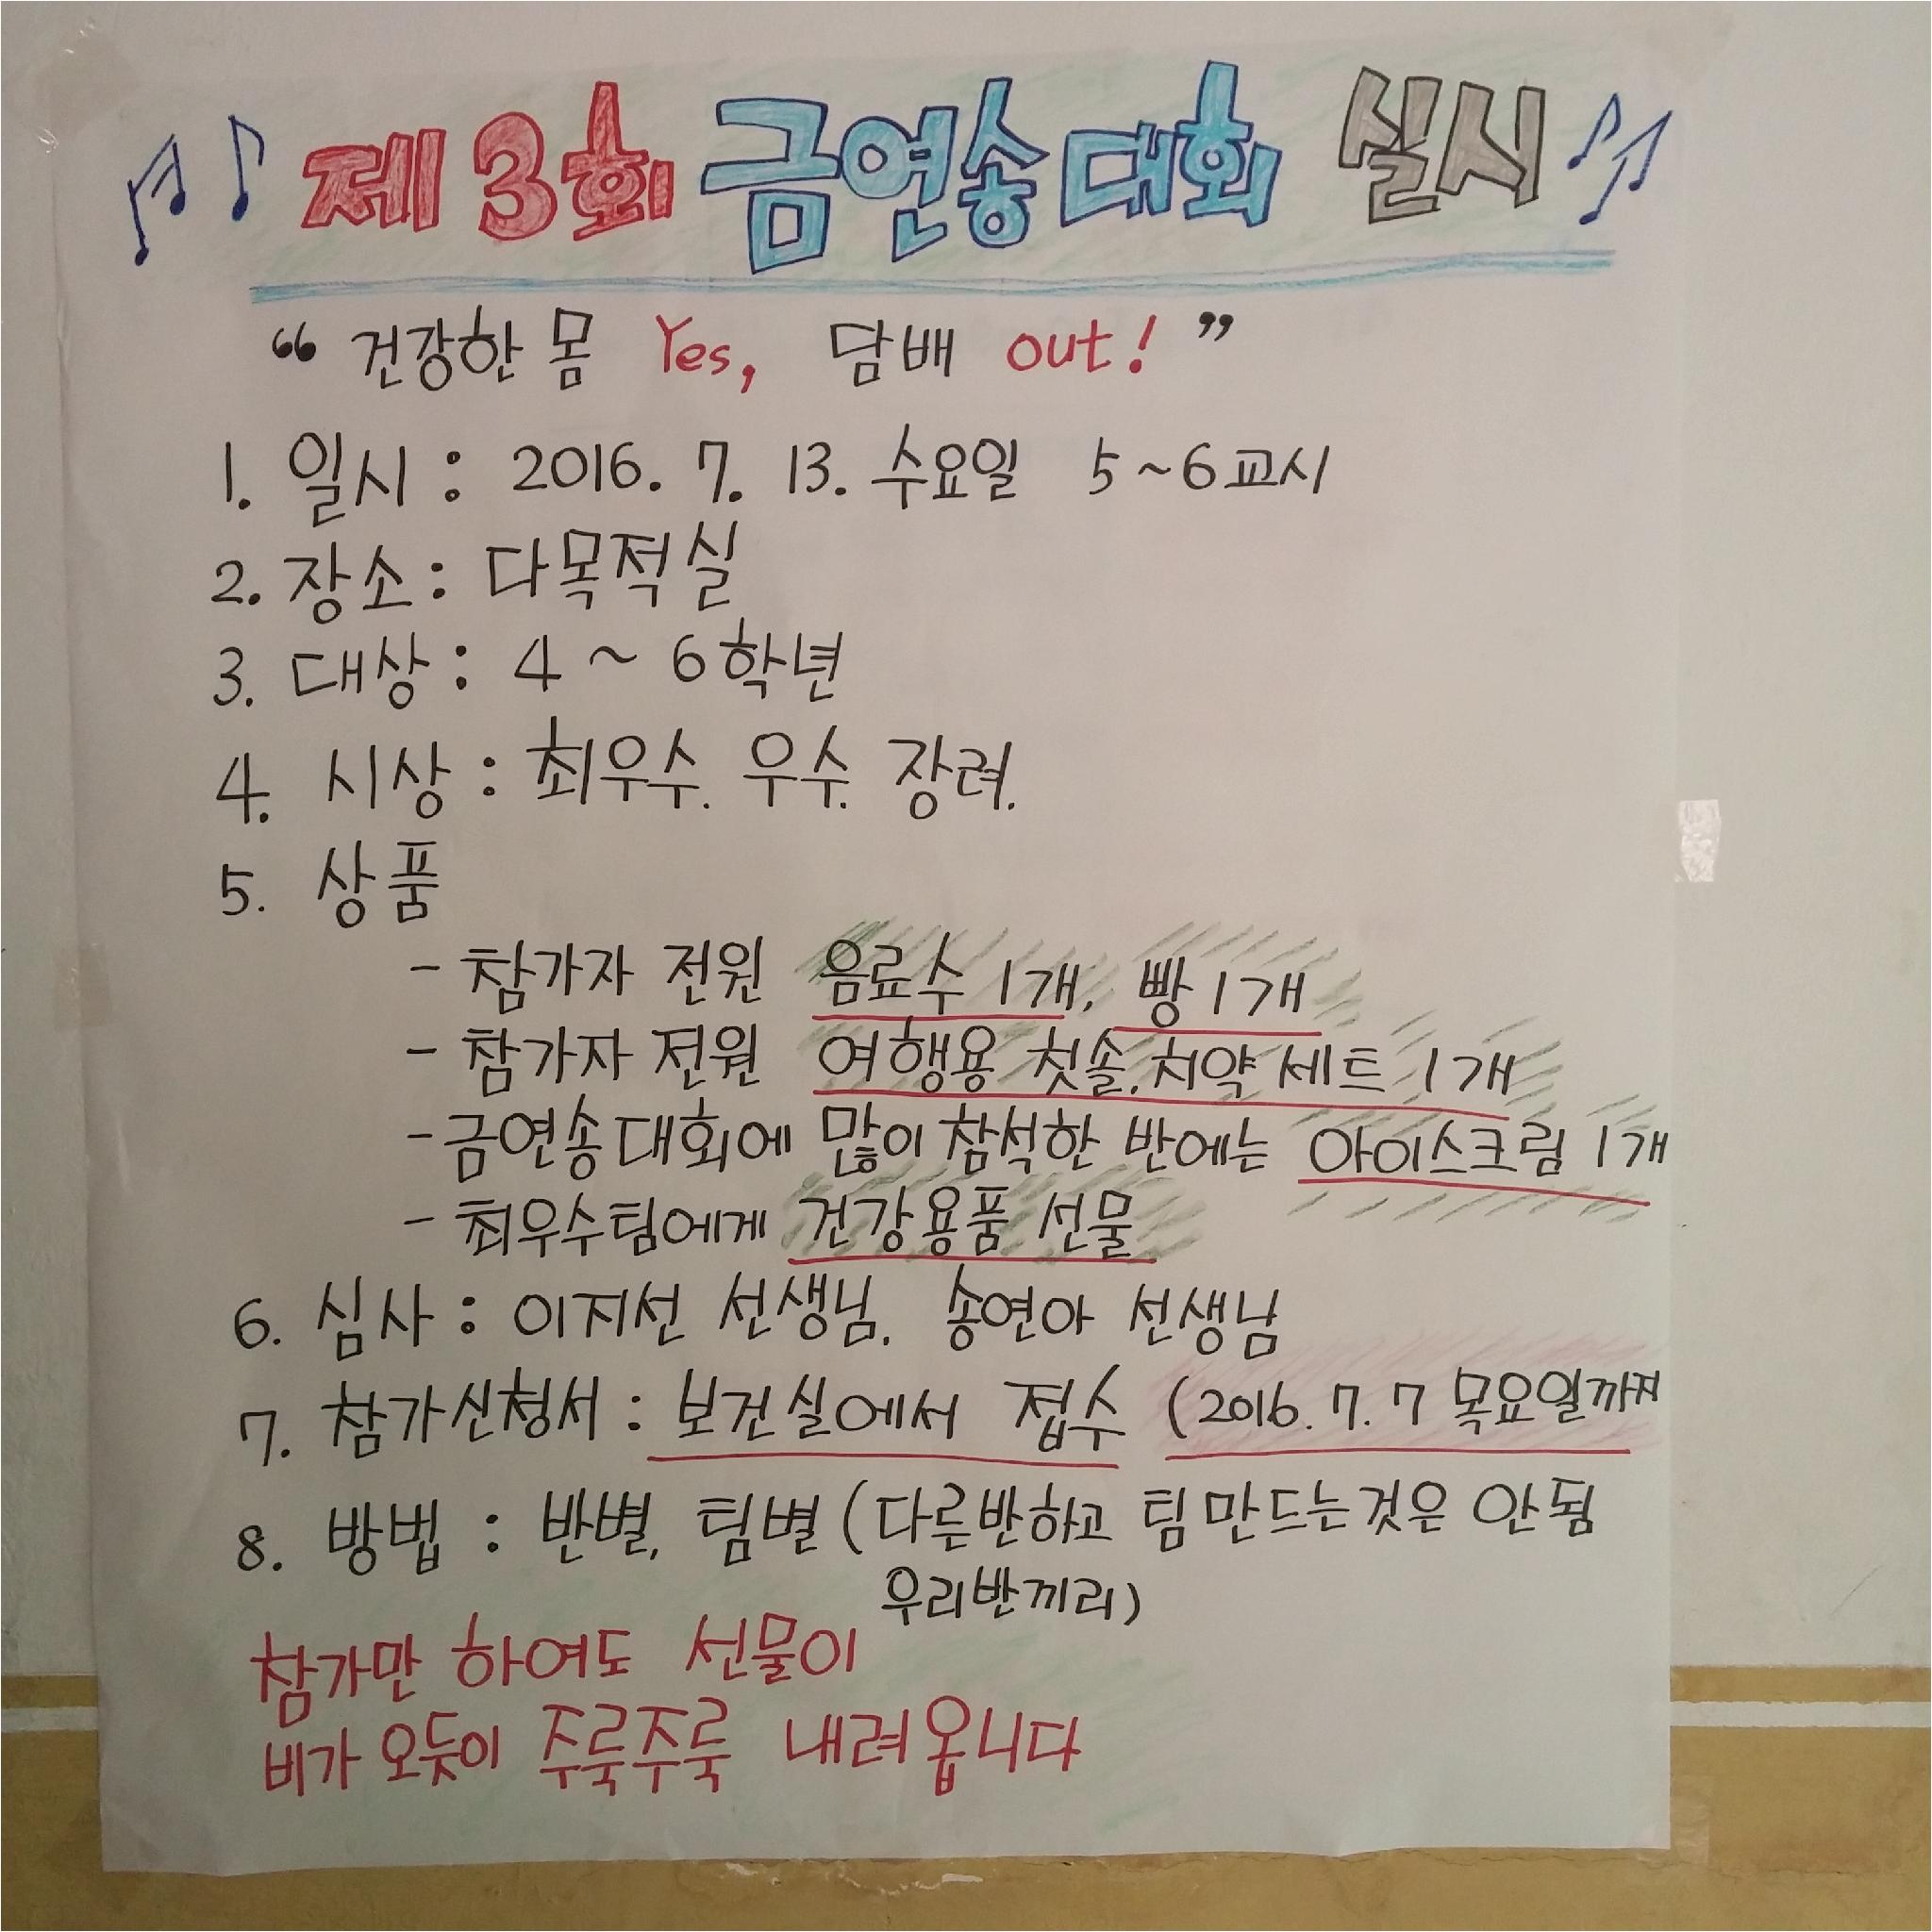 제3회 금연송대회 실시
“ 건강한 몸 Yes, 담배 out! ”
1. 일시 : 2016. 7. 13. 수요일 5~6교시
2. 장소 : 다목적실
3. 대상 : 4 ~ 6학년
4. 시상 : 최우수. 우수. 장려.
5. 상품
- 참가자 전원 음료수 1개, 빵 1개
- 참가자 전원 여행용 칫솔.치약 세트 1개
- 금연송대회에 많이 참석한 반에는 아이스크림 1개
- 최우수팀에게 건강용품 선물
6. 심사 : 이지선 선생님. 송연아 선생님
7. 참가신청서 : 보건실에서 접수 (2016. 7. 7 목요일까지
8. 방법 : 반별, 팀별 (다른반하고 팀 만드는것은 안됨
우리반끼리)
참가만 하여도 선물이
비가 오듯이 주룩주룩 내려옵니다